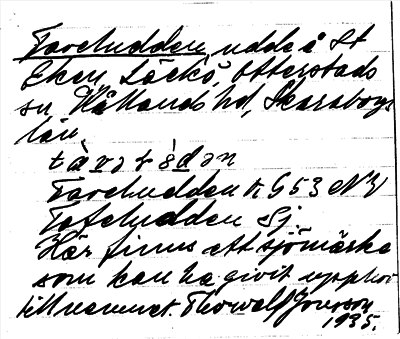 Taveludden, udde i St
Eken, Läckö, Otterstads
sn, Kållands hd, Skaraborgs
län.
Taveludden K G53 NV
Tafeludden Sj
Här finns ett sjömärke
som kan ha givit upphov
till namnet. Thorwald Jonsson
1935.